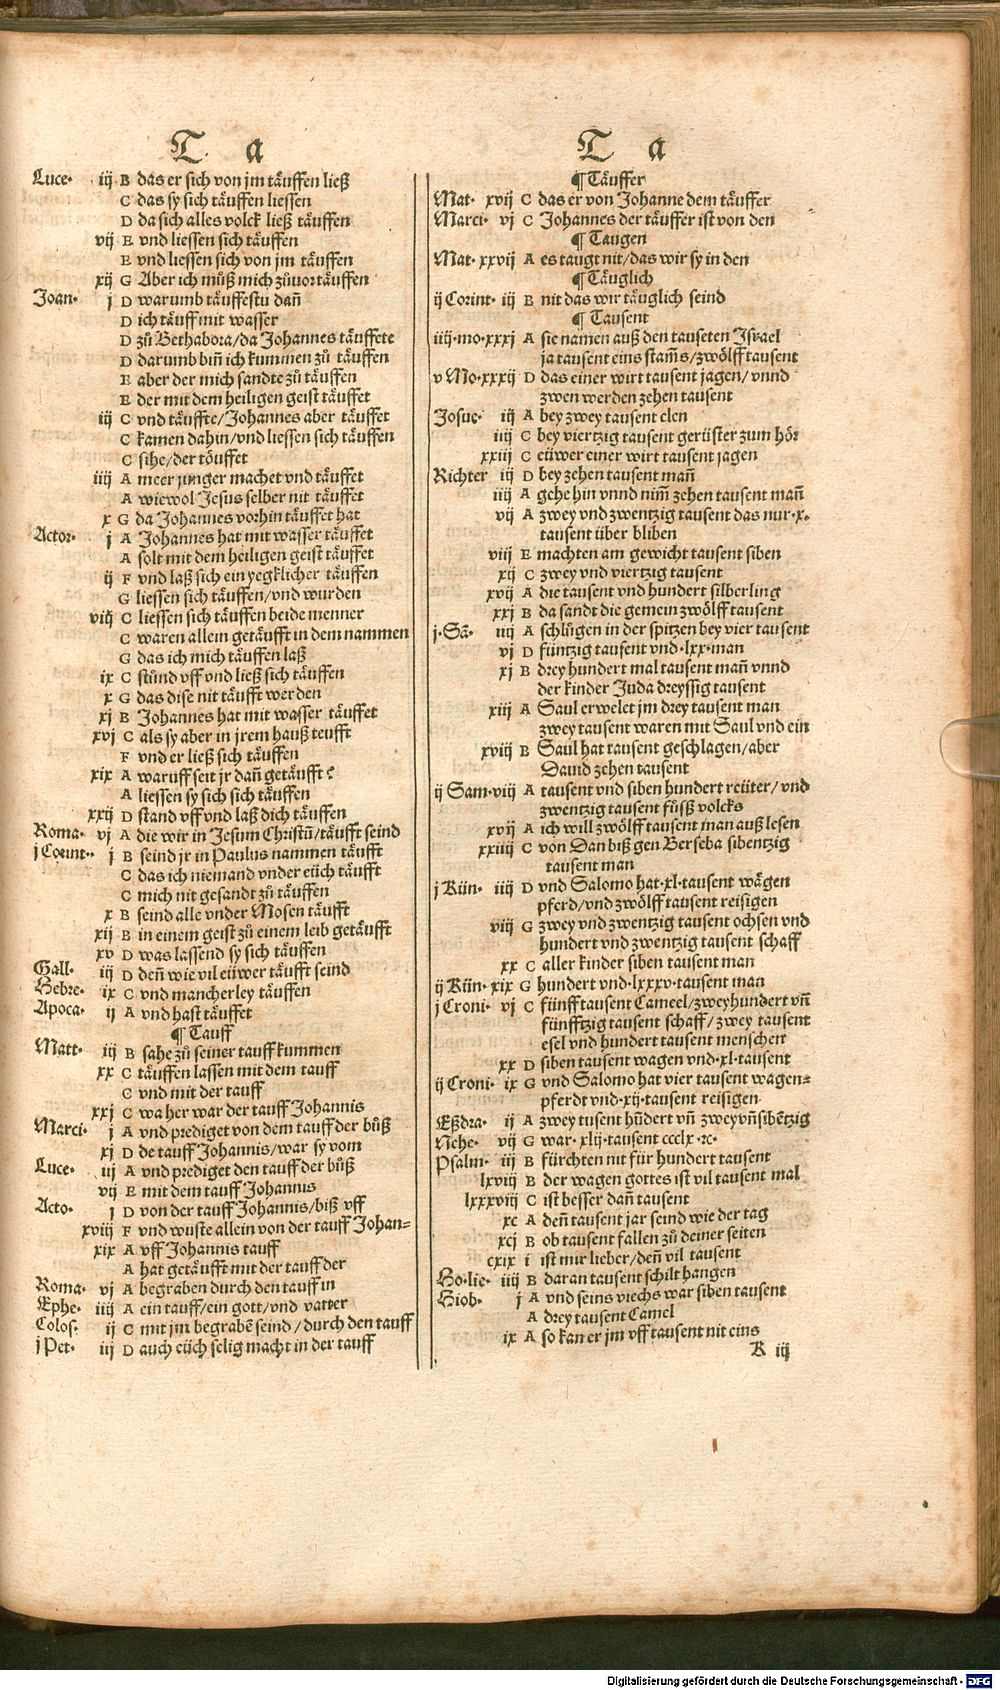 T a
Luce· iij B das er sich von jm täuffen ließ
C das sy sich täuffen liessen
D da sich alles volck ließ täuffen
vij E vnd liessen sich täuffen
E vnd liessen sich von jm täuffen
xij G Aber ich můß mich zůuor täuffen
Joan· j D warumb täuffestu dañ
D ich täuff mit wasser
D zů Bethabora/da Johannes täuffete
D darumb biñ ich kummen zů täuffen
E aber der mich sandte zů täuffen
E der mit dem heiligen geist täuffet
iij C vnd täuffte/Johannes aber täuffet
C kamen dahin/vnd liessen sich täuffen
C sihe/der töuffet
iiij A meer junger machet vnd täuffet
A wiewol Jesus selber nit täuffet
x G da Johannes vorhin täuffet hat
Actor· j A Johannes hat mit wasser täuffet
A solt mit dem heiligen geist täuffet
ij F vnd laß sich ein yegklicher täuffen
G liessen sich täuffen/vnd wurden
viij C liessen sich täuffen beide menner
C waren allein getäufft in dem nammen
G das ich mich täuffen laß
ix C stůnd vff vnd ließ sich täuffen
x G das dise nit täufft werden
xj B Johannes hat mit wasser täuffet
xvj C als sy aber in jrem hauß teufft
F vnd er ließ sich täuffen
xix A waruff seit jr dañ getäufft?
A liessen sy sich sich täuffen
xxij D stand vff vnd laß dich täuffen
Roma· vj A die wir in Jesum Christū/täufft seind
j Corint·· j B seind jr in Paulus nammen täufft
C das ich niemand vnder eüch täufft
C mich nit gesandt zů täuffen
x B seind alle vnder Mosen täufft
xij B in einem geist zů einem leib getäufft
xv D was lassend sy sich täuffen
Gall· iij D deñ wie vil eüwer täufft seind
Hebre· ix C vnd mancherley täuffen
Apoca· ij A vnd hast täuffet
¶ Tauff
Matt· iij B sahe zů seiner tauff kummen
xx C täuffen lassen mit dem tauff
C vnd mit der tauff
xxj C wa her war der tauff Johannis
Marci· j A vnd prediget von dem tauff der bůß
xj D de tauff Johannis/war sy vom
Luce· iij A vnd prediget den tauff der bůß
vij E mit dem tauff Johannis
Acto· j D von der tauff Johannis/biß vff
xviij F vnd wuste allein von der tauff Johan=
xix A vff Johannis tauff
A hat getäufft mit der tauff der
Roma· vj A begraben durch den tauff in
Ephe· iiij A ein tauff/ein gott/vnd vatter
Colos· ij C mit jm begrabē seind/durch den tauff
j Pet· iij D auch eüch selig macht in der tauff
T a
¶ Täuffer
Mat· xvij C das er von Johanne dem täuffer
Marci· vj C Johannes der täuffer ist von den
¶ Taugen
Mat· xxvij A es taugt nit/das wir sy in den
¶ Täuglich
ij Corint· iij B nit das wir täuglich seind
¶ Tausent
iiij·mo·xxxj A sie namen auß den tauseten Israel
ja tausent eins stam̄s/zwölff tausent
v Mo·xxxij D das einer wirt tausent jagen/vnnd
zwen werden zehen tausent
Josue· iij A bey zwey tausent elen
iiij C bey viertzig tausent gerüster zum hör
xxiij C eüwer einer wirt tausent jagen
Richter iij D bey zehen tausent mañ
iiij A gehe hin vnnd nim̄ zehen tausent mañ
vij A zwey vnd zwentzig tausent das nur·x·
tausent über bliben
viij E machten am gewicht tausent siben
xij C zwey vnd viertzig tausent
xvij A die tausent vnd hundert silberling
xxj B da sandt die gemein zwölff tausent
j·Sā· iiij A schlůgen in der spitzen bey vier tausent
vj D füntzig tausent vnd·lxx·man
xj B drey hundert mal tausent mañ vnnd
der kinder Juda dreyssig tausent
xiij A Saul erwelet jm drey tausent man
zwey tausent waren mit Saul vnd ein
xviij B Saul hat tausent geschlagen/aber
Dauid zehen tausent
ij Sam·viij A tausent vnd siben hundert reüter/vnd
zwentzig tausent fůsß volcks
xvij A ich will zwölff tausent man auß lesen
xxiiij C von Dan biß gen Berseba sibentzig
tausent man
j Kün· iiij D vnd Salomo hat·xl·tausent wägen
pferd/vnd zwölff tausent reisigen
viij G zwey vnd zwentzig tausent ochsen vnd
hundert vnd zwentzig tausent schaff
xx C aller kinder siben tausent man
ij Kün· xix G hundert vnd·lxxxv·tausent man
j Croni· vj C fünff tausent Cameel/zweyhundert vñ
fünfftzig tausent schaff/zwey tausent
esel vnd hundert tausent menschen
xx D siben tausent wagen vnd·xl·tausent
ij Croni· ix G vnd Salomo hat vier tausent wagen=
pferdt vnd·xij·tausent reisigen
Eßdra· ij A zwey tusent hūdert vñ zweyvñsibētzig
Nehe· vij G war· xlij·tausent ccclx·ꝛc·
Psalm· iij B fürchten nit für hundert tausent
lxviij B der wagen gottes ist vil tausent mal
lxxxviij C ist besser dañ tausent
xc A deñ tausent jar seind wie der tag
xcj B ob tausent fallen zů deiner seiten
cxix i ist mir lieber/deñ vil tausent
Ho·lie· iiij B daran tausent schilt hangen
Hiob· j A vnd seins viechs war siben tausent
A drey tausent Camel
ix A so kan er jm vff tausent nit eins
K iij
Digitalisierung gefördert durch die Deutsche Forschungsgemeinschaft - DFG